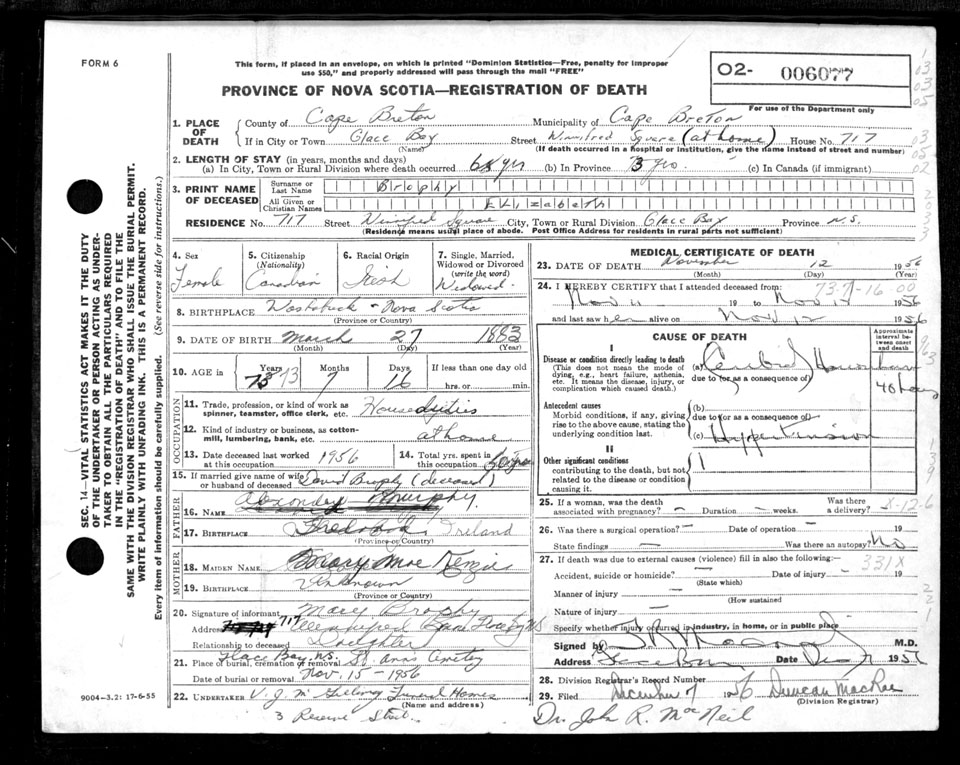 FORM 6
This form, if placed in an envelope, on which is printed "Dominion Statistics—Free, penalty for improper
use $50," and properly addressed will pass through the mail "FREE"
O2- 006077
For use of the Department only
PROVINCE OF NOVA SCOTIA—REGISTRATION OF DEATH
1. PLACE OF DEATH
County of Cape Breton Municipality of Cape Breton
If in City or Town Glace Bay Street Winnifred Square (at home) House No. 717
(Name) (If death occurred in a hospital or institution, give the name instead of street and number)
2. LENGTH OF STAY (in years, months and days)
(a) In City, Town or Rural Division where death occurred yrs (b) In Province yrs. (c) In Canada (if immigrant)
3. PRINT NAME OF DECEASED
Surname or Last Name Brophy
All Given or Christian Names Elizabeth
RESIDENCE No. 717 Street Winnifred Square City, Town or Rural Division Glace Bay Province N.S.
(Residence means usual place of abode. Post Office Address for residents in rural parts not sufficient)
4. Sex Female
5. Citizenship (Nationality) Canadian
6. Racial Origin Irish
7. Single, Married, Widowed or Divorced (write the word) Widowed
8. BIRTHPLACE Nova Scotia
(Province or Country)
9. DATE OF BIRTH March 27 1883
(Month) (Day) (Year)
10. AGE in Years 73 Months 7 Days 16 If less than one day old
hrs. or min.
OCCUPATION
11. Trade, profession, or kind of work as spinner, teamster, office clerk, etc. House duties
12. Kind of industry or business, as cotton-mill, lumbering, bank, etc. at home
13. Date deceased last worked at this occupation 1956
14. Total yrs. spent in this occupation
15. If married give name of wife or husband of deceased David Brophy (deceased)
FATHER
16. NAME Murphy
17. BIRTHPLACE Ireland
(Province or Country)
MOTHER
18. MAIDEN NAME Mary
19. BIRTHPLACE Unknown
(Province or Country)
20. Signature of informant Mary Brophy
Address 717
Relationship to deceased Daughter
Glace Bay, N.S.
21. Place of burial, cremation or removal St. Anns Cemetery
Date of burial or removal Nov. 15 - 1956
22. UNDERTAKER V. J. Funeral Homes
(Name and address)
3 Reserve Street
9004—3.2: 17-6-55
SEC. 14—VITAL STATISTICS ACT MAKES IT THE DUTY
OF THE UNDERTAKER OR PERSON ACTING AS UNDER-
TAKER TO OBTAIN ALL THE PARTICULARS REQUIRED
IN THE "REGISTRATION OF DEATH" AND TO FILE THE
SAME WITH THE DIVISION REGISTRAR WHO SHALL ISSUE THE BURIAL PERMIT.
WRITE PLAINLY WITH UNFADING INK. THIS IS A PERMANENT RECORD.
Every item of information should be carefully supplied. (See reverse side for instructions.)
MEDICAL CERTIFICATE OF DEATH
23. DATE OF DEATH November 12 1956
(Month) (Day) (Year)
24. I HEREBY CERTIFY that I attended deceased from:
Nov 11 19 to Nov 12 1956
and last saw her alive on Nov 12 1956
73-7-16-00
CAUSE OF DEATH
Approximate interval between onset and death
I
Disease or condition directly leading to death
(This does not mean the mode of dying, e.g., heart failure, asthenia, etc. It means the disease, injury, or complication which caused death.)
(a) Cerebral
due to (or as a consequence of)
Antecedent causes
Morbid conditions, if any, giving rise to the above cause, stating the underlying condition last.
(b)
due to (or as a consequence of)
(c) Hypertension
II
Other significant conditions
contributing to the death, but not related to the disease or condition causing it.
25. If a woman, was the death associated with pregnancy? — Duration — weeks. Was there a delivery?
26. Was there a surgical operation? — Date of operation — 19
State findings — Was there an autopsy? No
27. If death was due to external causes (violence) fill in also the following:
Accident, suicide or homicide? — Date of injury — 19
(State which)
331X
Manner of injury —
(How sustained
Nature of injury —
Specify whether injury occurred in industry, in home, or in public place
Signed by M.D.
Address Glace Bay Date 1956
28. Division Registrar's Record Number
29. Filed December 7 1956 Duncan MacRae
(Division Registrar)
Dr. John R. MacNeil